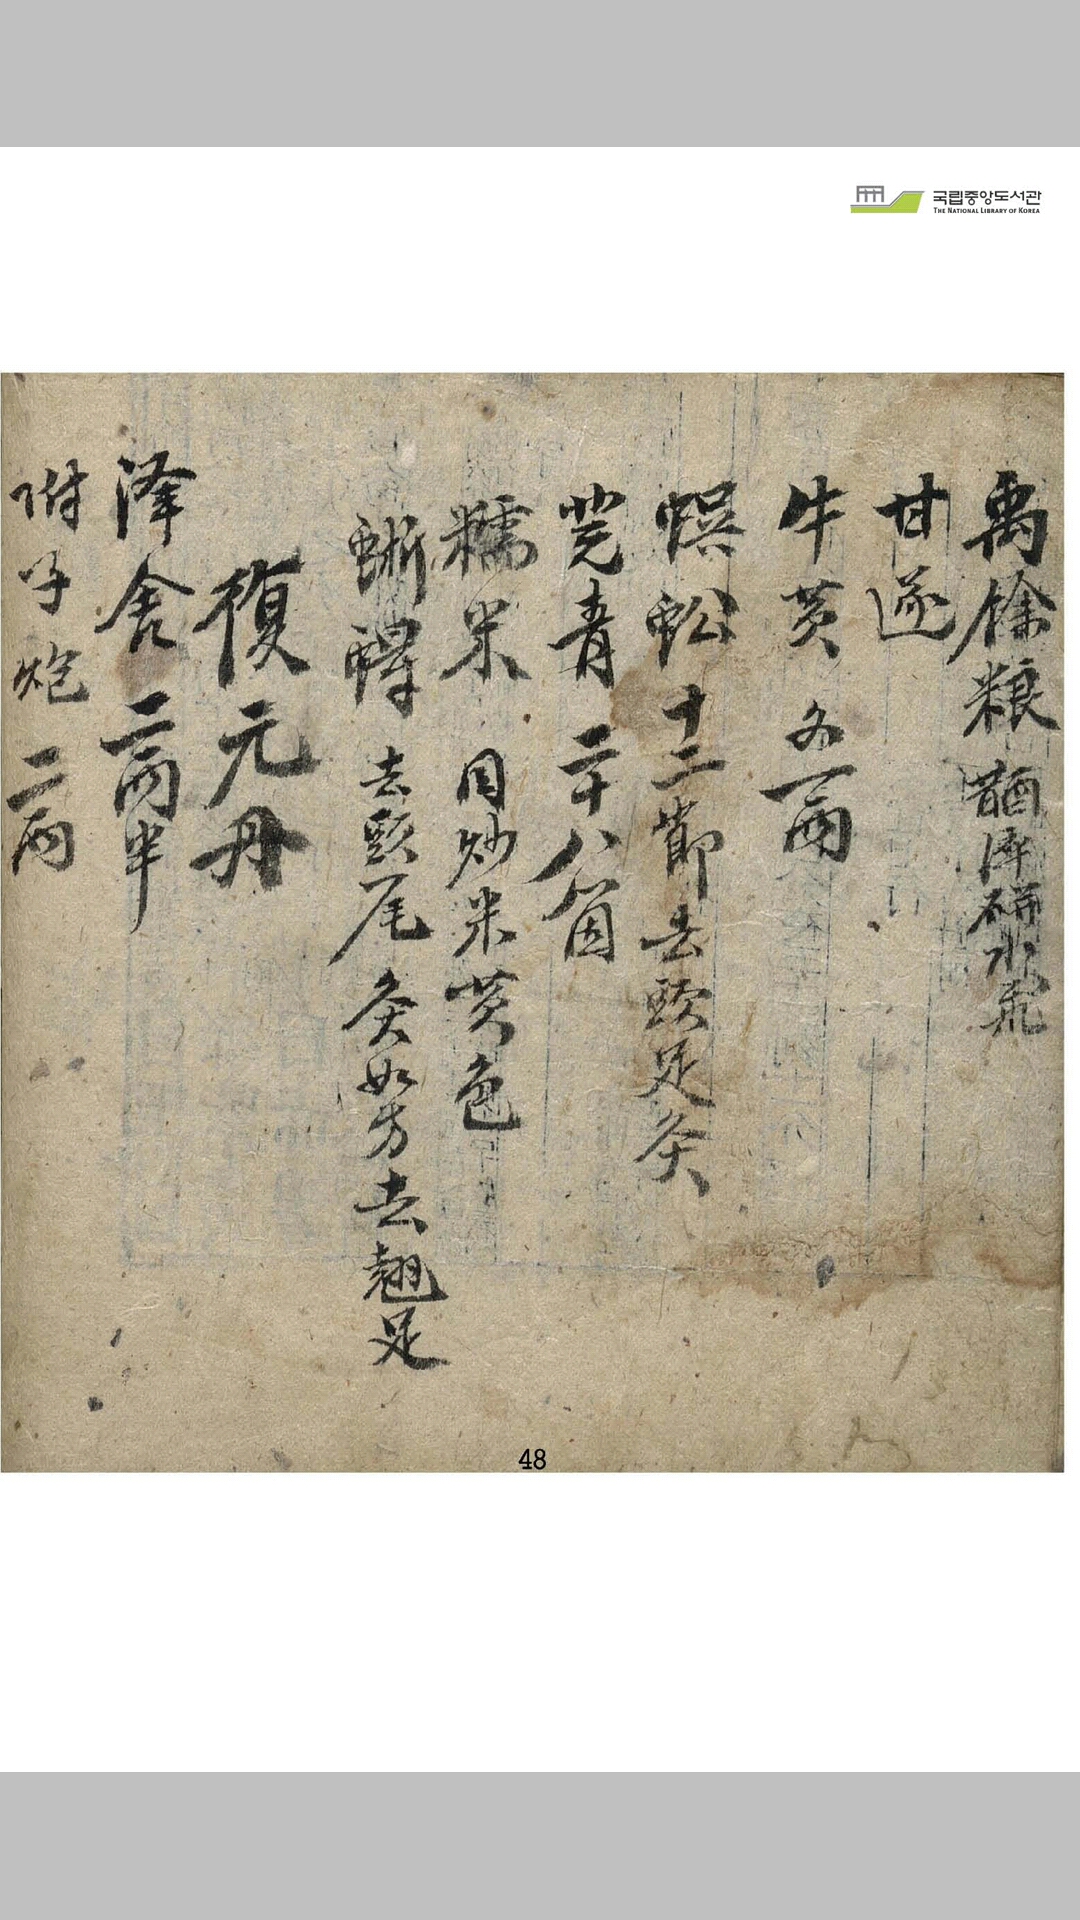 국립중앙도서관
THE NATIONAL LIBRARY OF KOREA
禹餘粮 醋淬研水飛
甘遂
牛黃 各一兩
蜈蚣 十二節去頭足灸
芫青 二十八箇
糯米 同炒米黃色
蜥蜴 去頭尾灸如方去翅足
復元丹
泽舍 二两半
附子炮 二两
48